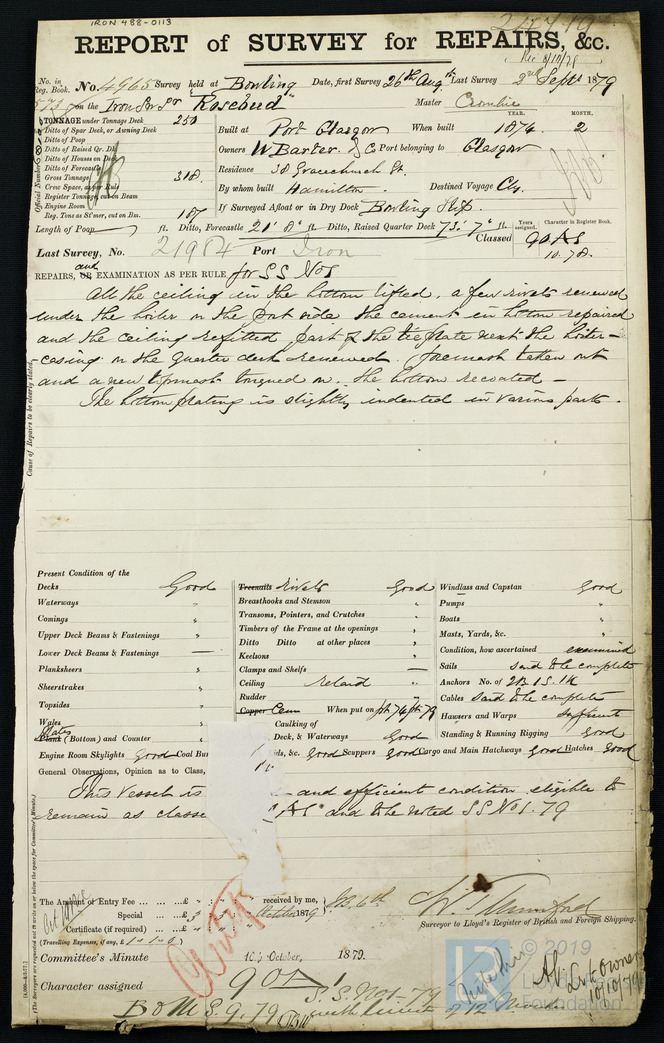 IRON 488-0113
REPORT of SURVEY for REPAIRS, &c.
No. in Reg. Book. No. 4965 Survey held at Bowling Date, first Survey 26th Aug. Last Survey 2nd Sept. 1879
on the Iron "Rosebud" Master
TONNAGE under Tonnage Deck 250
Ditto of Spar Deck, or Awning Deck
Ditto of Poop
Ditto of Raised Qr. Dk.
Ditto of Houses on Deck
Ditto of Forecastle
Gross Tonnage 318.
Crew Space, as per Rule
Register Tonnage, cut on Beam
Engine Room
Reg. Tons as St'mer, cut on Bm. 187
Official Number
Built at Port Glasgow When built YEAR. 1874. MONTH. 2
Owners W Baxter. & Co Port belonging to Glasgow
Residence 38 Gracechurch St.
By whom built Hamilton. Destined Voyage Cly.
If Surveyed Afloat or in Dry Dock Bowling Slip.
Length of Poop ft. Ditto, Forecastle 21' 8" ft. Ditto, Raised Quarter Deck 73' 7" ft.
Years assigned. Character in Register Book.
Classed 90A1
10.78.
Last Survey, No. 21984 Port Iron
REPAIRS, and OR EXAMINATION AS PER RULE, for SS No1
All the ceiling in the bottom lifted, a few rivets renewed
under the boiler on the port side the cement in bottom repaired
and the ceiling refitted part of the tie plate next the boiler
casing on the quarter deck renewed. foremast taken out
and a new topmast tongued on. the bottom recoated —
The bottom plating is slightly indented in various parts.
Cause of Repairs to be clearly stated.
Present Condition of the
Decks Good
Waterways "
Comings "
Upper Deck Beams & Fastenings "
Lower Deck Beams & Fastenings —
Planksheers "
Sheerstrakes "
Topsides "
Wales "
Plates Plank (Bottom) and Counter "
Engine Room Skylights Good Coal Bu
Treenails Rivets Good
Breasthooks and Stemson "
Transoms, Pointers, and Crutches "
Timbers of the Frame at the openings "
Ditto Ditto at other places "
Keelsons "
Clamps and Shelfs —
Ceiling "
Rudder "
Copper Cem When put on
Caulking of
Deck, & Waterways Good
ds, &c. Good Scuppers Good Cargo and Main Hatchways Good Hatches Good
Windlass and Capstan Good
Pumps "
Boats "
Masts, Yards, &c. "
Condition, how ascertained examined
Sails said to be complete
Anchors No. of 2B 1S 1K
Cables said to be complete
Hawsers and Warps sufficient
Standing & Running Rigging Good
General Observations, Opinion as to Class,
This vessel is and efficient condition eligible to
remain as classe "A1" and to be noted SS No1. 79
The Amount of Entry Fee ... £ " " " received by me,
Special ... £ 3 " " October 1879
Certificate (if required) ... £ " " "
(Travelling Expenses, if any, £ 1-1-0)
Surveyor to Lloyd's Register of British and Foreign Shipping.
Committee's Minute 10th October, 1879.
Character assigned 90A1
S.S. No1. 79
B & M S 9.79
10/10/79
© 2019
Foundation